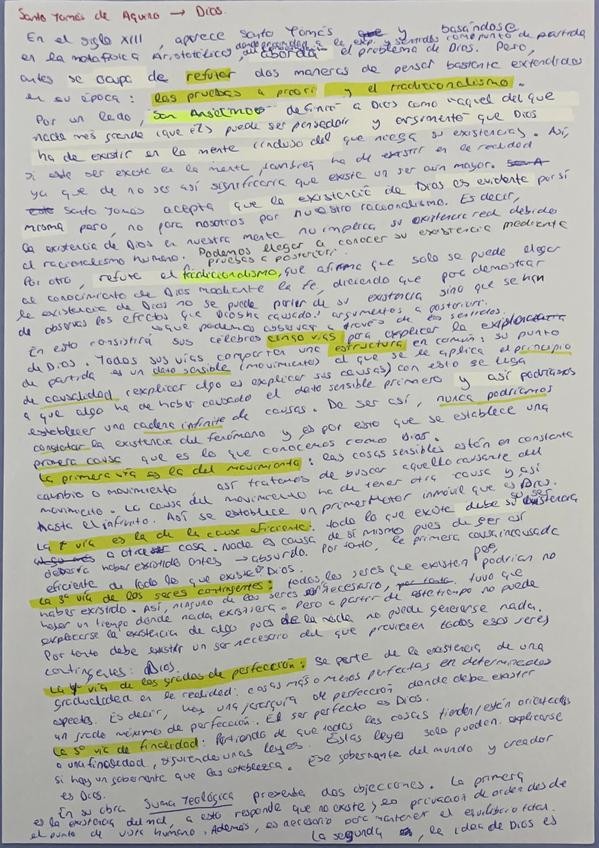 Santo Tomás de Aquino → Dios.
En el siglo XIII, aparece Santo Tomás y basándose
en la metafísica Aristotélica, aborda el problema de Dios. Pero,
antes se ocupa de refutar dos maneras de pensar bastante extendidas
en su época: las pruebas a priori y el tradicionalismo.
Por un lado, San Anselmo definía a Dios como "aquel del que
nada más grande (que él) puede ser pensado" y argumentó que Dios
ha de existir en la mente (incluso del que niega su existencia). Así,
si este ser existe en la mente, también ha de existir en la realidad
ya que de no ser así significaría que existe un ser aún mayor.
Santo Tomás acepta que la existencia de Dios es evidente por sí
misma pero, no para nosotros por nuestro racionalismo. Es decir,
la existencia de Dios en nuestra mente no implica su existencia real debido
al racionalismo humano. Podemos llegar a conocer su existencia mediante
pruebas a posteriori.
Por otro, refuta el tradicionalismo, que afirma que solo se puede llegar
al conocimiento de Dios mediante la fe, diciendo que para demostrar
la existencia de Dios no se puede partir de su existencia sino que se han
de observar los efectos que Dios ha causado: argumentos a posteriori.
→ que podemos observar a través de los sentidos.
En esto consistirá sus célebres cinco vías para explicar la
de Dios. Todas sus vías comparten una estructura en común: su punto
de partida es un dato sensible (movimiento) al que se le aplica el principio
de causalidad (explicar algo es explicar sus causas) con esto se llega
a que algo ha de haber causado el dato sensible primero y así podríamos
establecer una cadena infinita de causas. De ser así, nunca podríamos
constatar la existencia del fenómeno y es por esto que se establece una
primera causa que es lo que conocemos como Dios.
La primera vía es la del movimiento: las cosas sensibles están en constante
cambio o movimiento así tratamos de buscar aquello causante del
movimiento. La causa del movimiento ha de tener otra causa y así
hasta el infinito. Así se establece un primer Motor inmóvil que es Dios.
La 2ª vía es la de la causa eficiente: todo lo que existe debe su existencia
a otra cosa. Nada es causa de sí mismo pues de ser así
debería haber existido antes → absurdo. Por tanto, la primera causa incausada
eficiente de todo lo que existe: Dios.
La 3ª vía de los seres contingentes: todos los seres que existen podrían no
haber existido. Así, ninguno de los seres es necesario, tuvo que
haber un tiempo donde nada existiera. Pero a partir de este tiempo no puede
explicarse la existencia de algo pues de la nada no puede generarse nada.
Por tanto debe existir un ser necesario del que provienen todos esos seres
contingentes: Dios.
La 4ª vía de los grados de perfección: se parte de la existencia de una
gradualidad en la realidad: cosas más o menos perfectas en determinados
aspectos. Es decir, hay una jerarquía de perfección donde debe existir
un grado máximo de perfección. El ser perfecto es Dios.
La 5ª vía de finalidad: Partiendo de que todas las cosas tienden/están orientadas
a una finalidad, siguiendo unas leyes. Estas leyes solo pueden explicarse
si hay un gobernante que las establezca. Ese gobernante del mundo y creador
es Dios.
En su obra Suma Teológica presenta dos objeciones. La primera
es la existencia del mal, a esto responde que no existe, es privación de orden desde
el punto de vista humano. Además, es necesario para mantener el equilibrio total.
La segunda la idea de Dios es